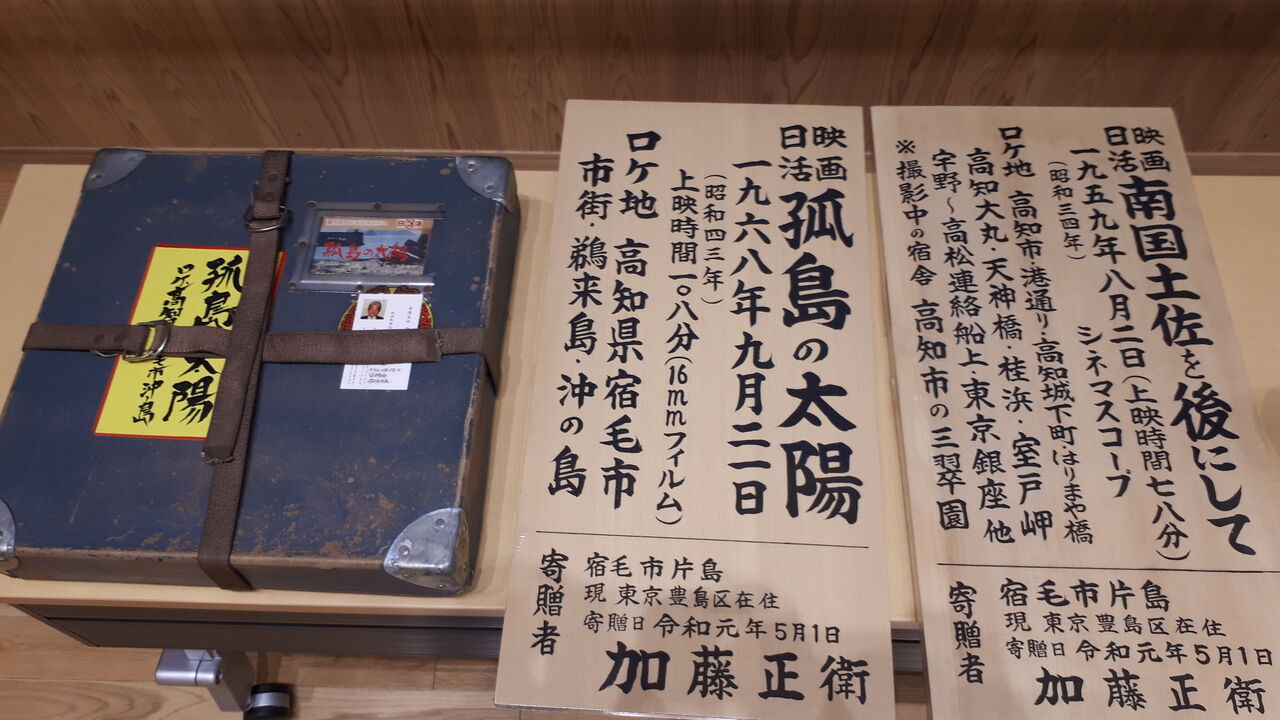 孤島の太陽
日活
孤島の太陽
沖島
映画
日活
孤島の太陽
一九六八年九月二一日
(昭和四三年)
上映時間一〇八分(16mmフィルム)
ロケ地 高知県宿毛市
市街・鵜来島・沖の島
寄贈者
宿毛市片島
現 東京豊島区在住
寄贈日 令和元年5月1日
加藤正衛
映画
日活
南国土佐を後にして
一九五九年八月二日(上映時間七八分)
(昭和三四年)
シネマスコープ
ロケ地 高知市港通り・高知城下町・はりまや橋
高知大丸・天神橋・桂浜・室戸岬
宇野〜高松連絡船上・東京銀座他
※撮影中の宿舎 高知市の三翠園
寄贈者
宿毛市片島
現 東京豊島区在住
寄贈日 令和元年5月1日
加藤正衛